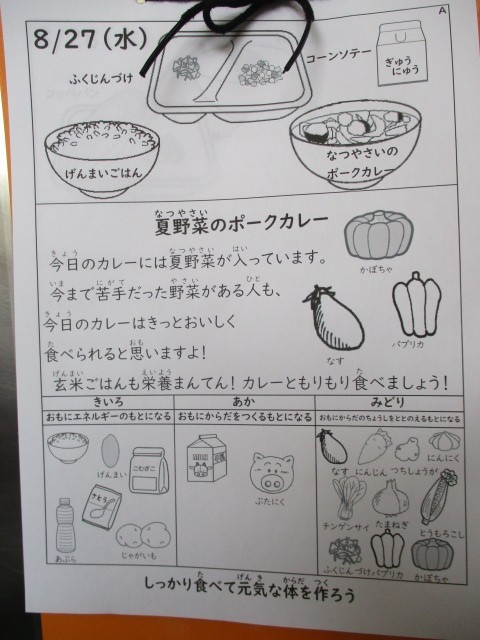 A
8/27(水)
ふくじんづけ
コーンソテー
ぎゅう
にゅう
げんまいごはん
なつやさいの
ポークカレー
夏野菜のポークカレー
なつやさい
きょう なつやさい はい
今日のカレーには夏野菜が入っています。
いま にがて やさい ひと
今まで苦手だった野菜がある人も、
きょう
今日のカレーはきっとおいしく
た おも
食べられると思いますよ!
げんまい えいよう た
玄米ごはんも栄養まんてん! カレーともりもり食べましょう!
かぼちゃ
なす
パプリカ
きいろ あか みどり
おもにエネルギーのもとになる おもにからだをつくるもとになる おもにからだのちょうしをととのえるもとになる
げんまい
こむぎこ
さとう
あぶら
じゃがいも
ぶたにく
なす にんじん つちしょうが にんにく
チンゲンサイ たまねぎ とうもろこし
ふくじんづけ パプリカ かぼちゃ
た げんき からだ つく
しっかり食べて元気な体を作ろう